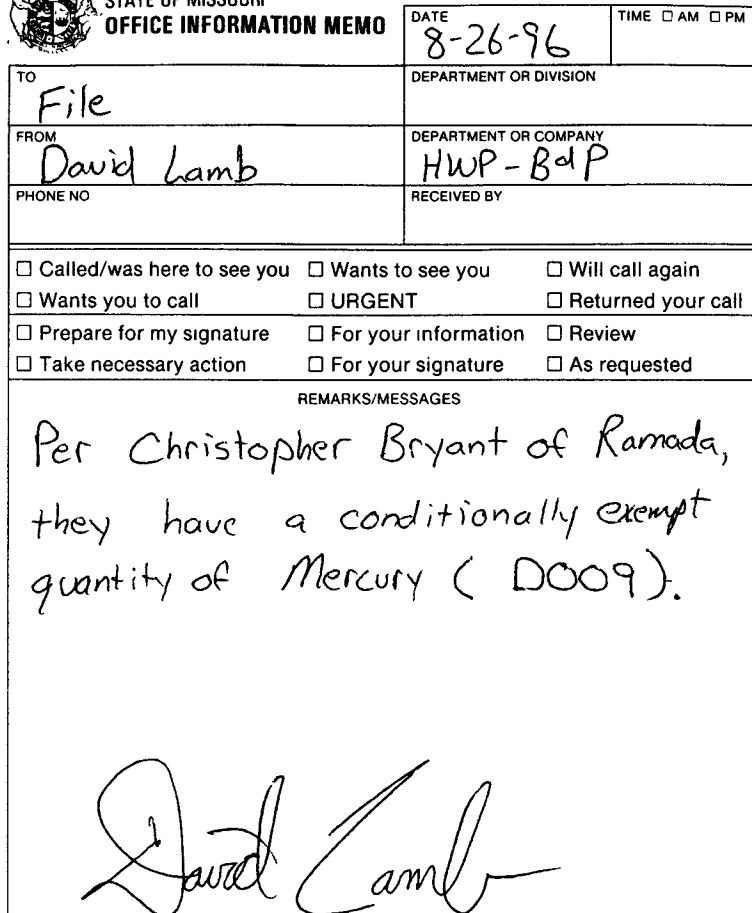 STATE OF MISSOURI
OFFICE INFORMATION MEMO
DATE
8-26-96
TIME ☐ AM ☐ PM
TO
File
DEPARTMENT OR DIVISION
FROM
David Lamb
DEPARTMENT OR COMPANY
HWP-BdP
PHONE NO
RECEIVED BY
☐ Called/was here to see you ☐ Wants to see you ☐ Will call again
☐ Wants you to call ☐ URGENT ☐ Returned your call
☐ Prepare for my signature ☐ For your information ☐ Review
☐ Take necessary action ☐ For your signature ☐ As requested
REMARKS/MESSAGES
Per Christopher Bryant of Ramada,
they have a conditionally exempt
quantity of Mercury ( D009).
David Lamb